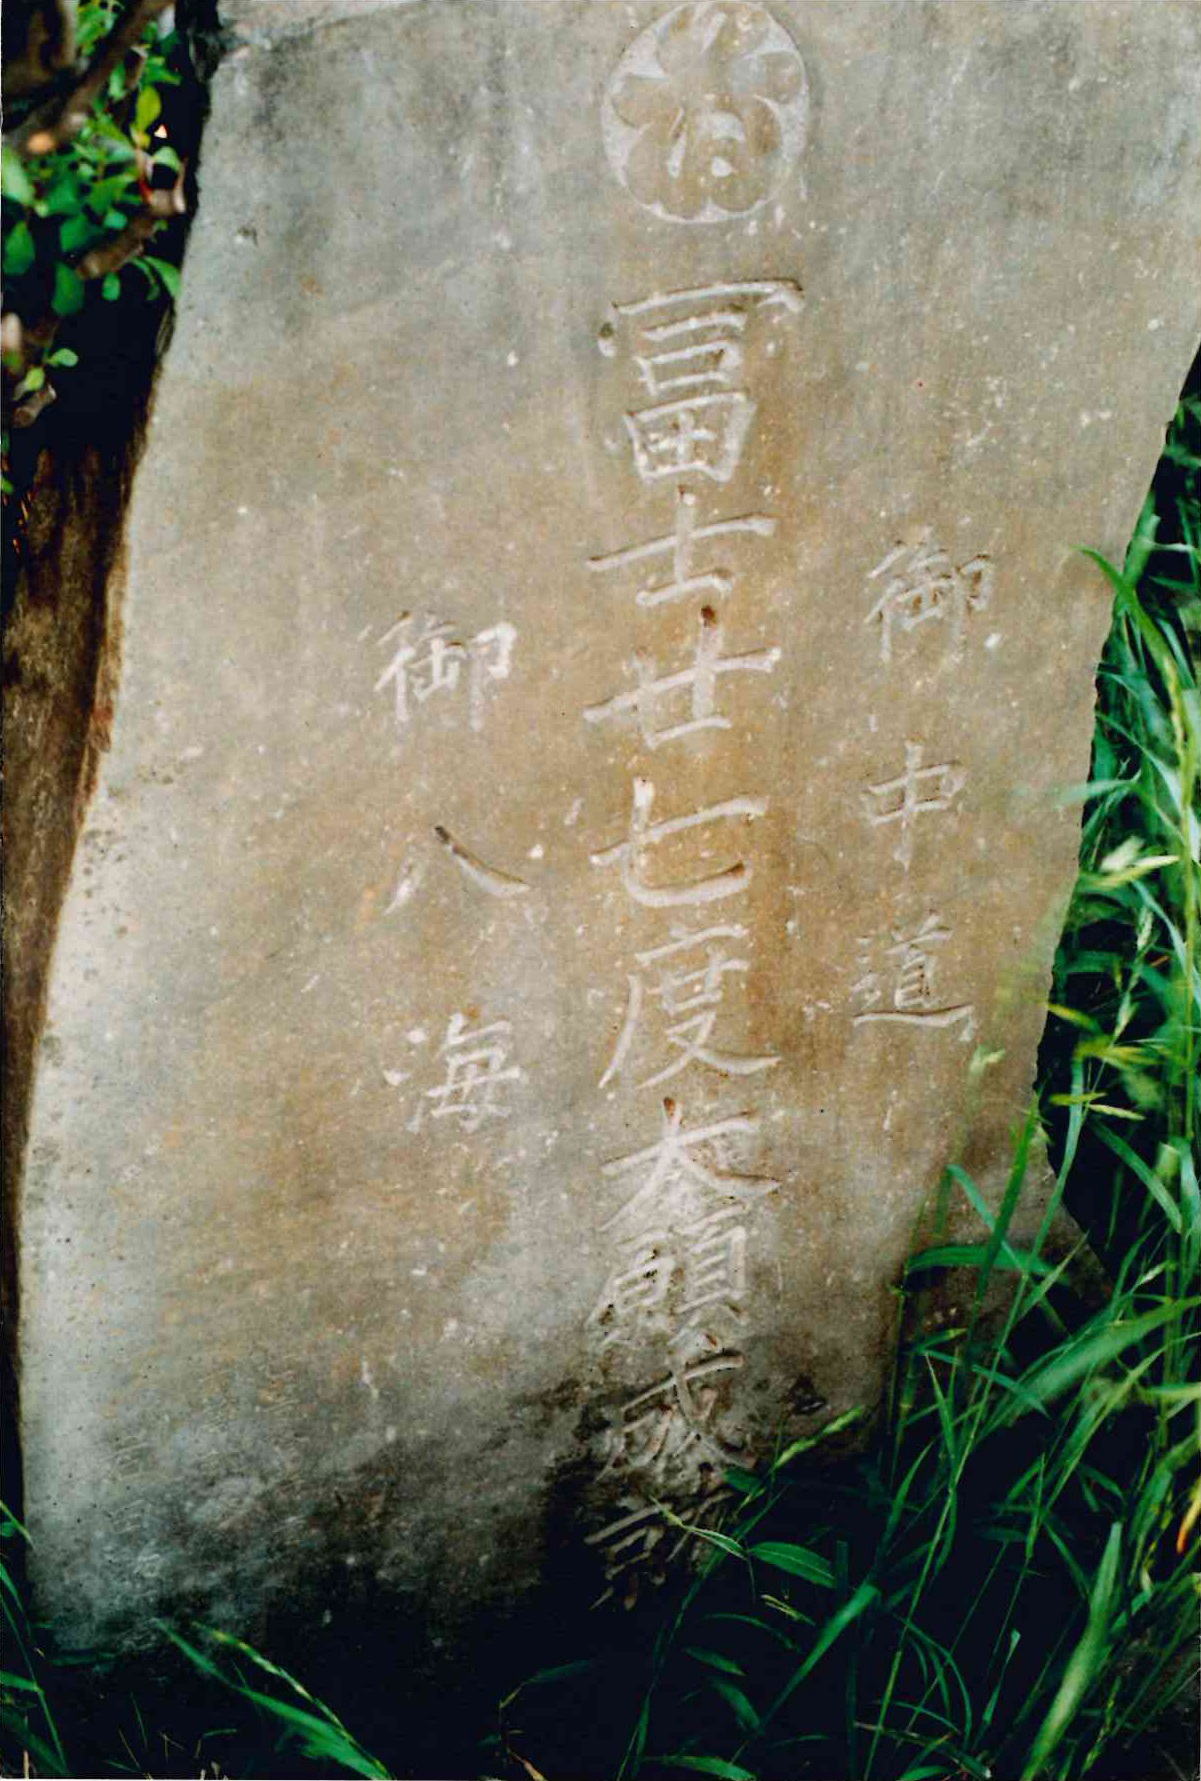 御中道
冨士廿七度大願成就
御八海